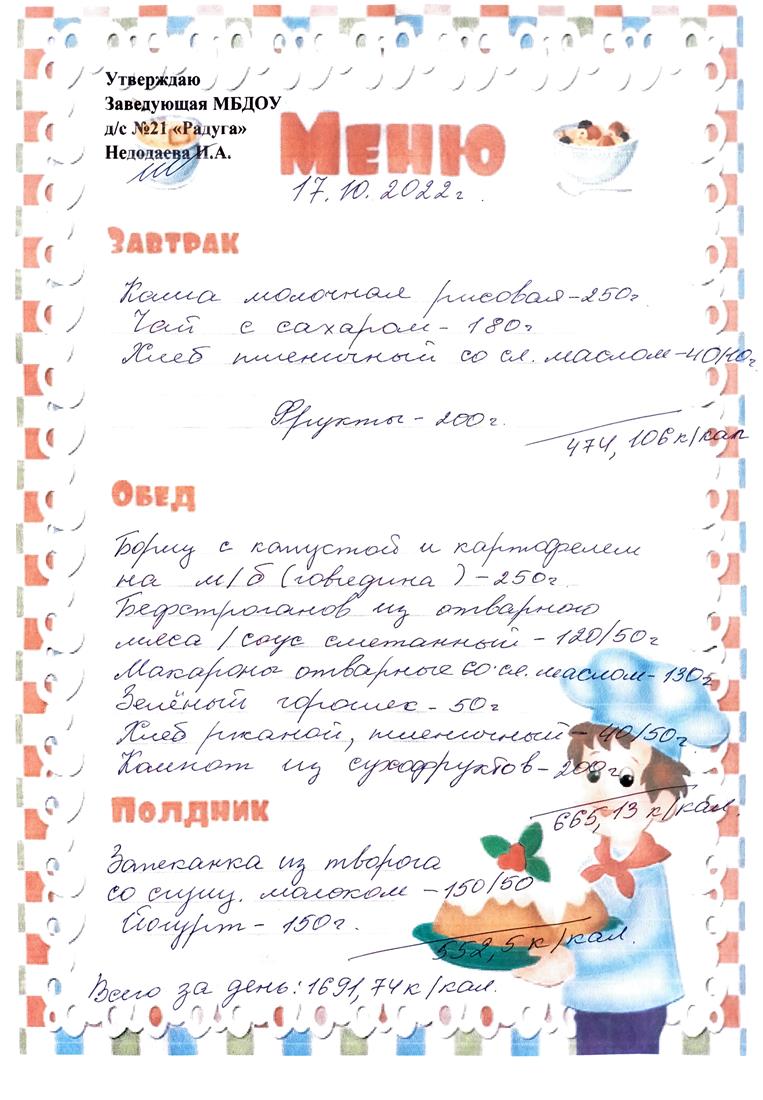 Утверждаю
Заведующая МБДОУ
д/с №21 «Радуга»
Недодаева И.А.
Меню
17.10.2022г.
Завтрак
Каша молочная рисовая-250г.
Чай с сахаром- 180г
Хлеб пшеничный со сл. маслом-40/10г.
Фрукты-200г.
474,106к/кал
Обед
Борщ с капустой и картофелем
на м/б (говядина)-250г.
Бефстроганов из отварного
мяса /соус сметанный-120/50г
Макароны отварные со сл. маслом-130г
Зелёный горошек-50г
Хлеб ржаной, пшеничный-40/50г.
Компот из сухофруктов-200г
665,13 к/кал.
Полдник
Запеканка из творога
со сгущ. молоком -150/50
Йогурт- 150г.
552,5 к/кал.
Всего за день:1691,74к/кал.